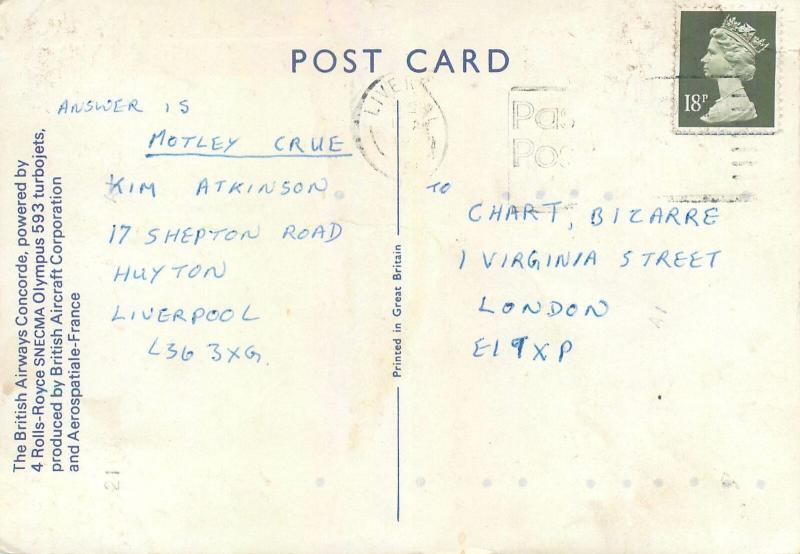 POST CARD
ANSWER IS
MOTLEY CRUE
KIM ATKINSON
17 SHEPTON ROAD
HUYTON
LIVERPOOL
L36 3XG.
TO
CHART, BIZARRE
1 VIRGINIA STREET
LONDON
E1 9XP
18P
Pas
Pos
The British Airways Concorde, powered by
4 Rolls-Royce SNECMA Olympus 593 turbojets,
produced by British Aircraft Corporation
and Aerospatiale-France
Printed in Great Britain
21